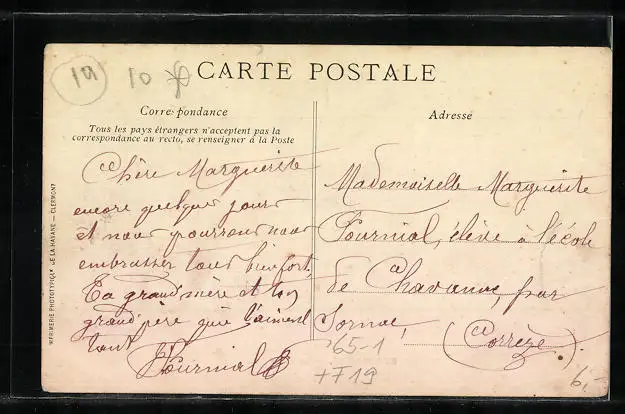 19 10
CARTE POSTALE
Correspondance
Adresse
Tous les pays étrangers n'acceptent pas la
correspondance au recto, se renseigner à la Poste
Chère Marguerite
encore quelques jours
et nous pourrons nous
embrasser tous bien fort.
Ta grand'mère et ton
grand père qui t'aiment
tous
Fournial
Mademoiselle Marguerite
Fournial, élève à l'école
de Chavanac, par
Sornac,
(Corrèze).
265-1
+F19
6,-
IMPRIMERIE PHOTOTYPIQUE DE LA HAVANE — CLERMONT